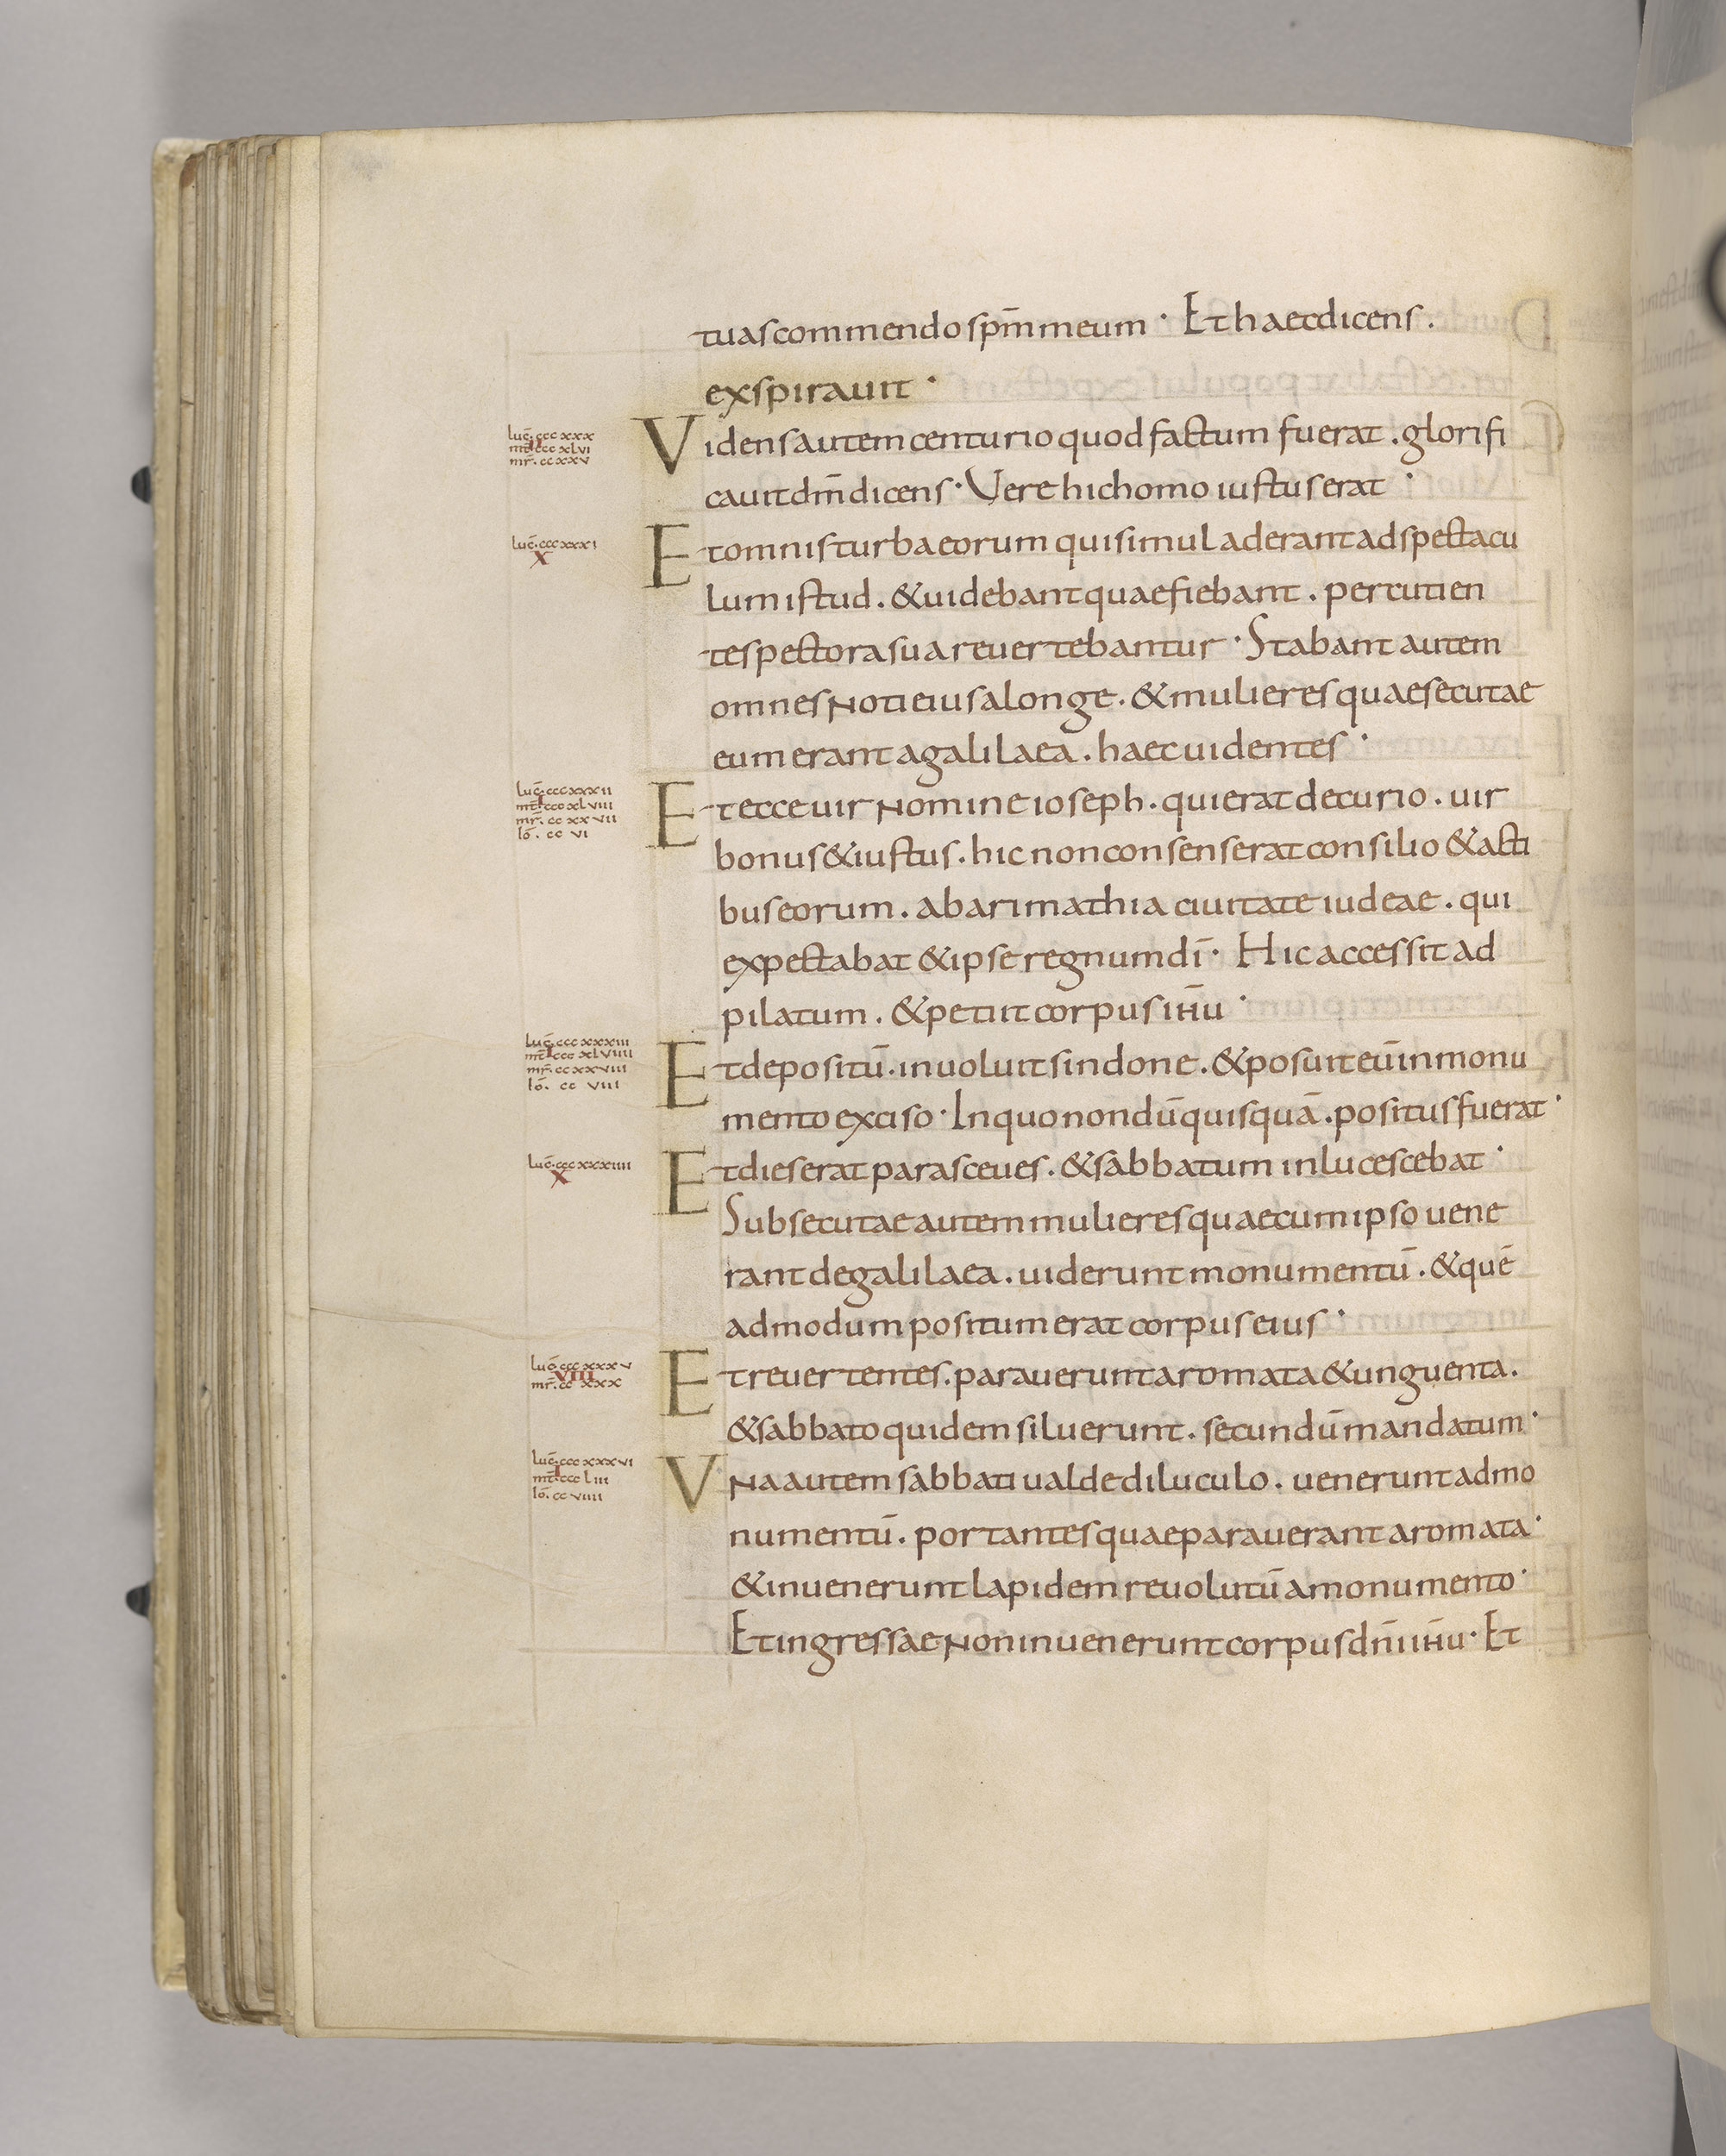 tuas commendo sp̄m meum · Et haec dicens .
exspirauit ·
luc̄. ccc xxx
II
mt̄. ccc xlvi
mr̄. cc xxv
Videns autem centurio quod factum fuerat . glorifi
cauit dm̄ dicens · Vere hic homo iustus erat ·
luc̄. ccc xxxi
X
Et omnis turba eorum qui simul aderant ad spectacu
lum istud . & uidebant quae fiebant . percutien
tes pectora sua reuertebantur · Stabant autem
omnes noti eius a longe . & mulieres quae secutae
eum erant a galilaea . haec uidentes ·
luc̄. ccc xxxii
I
mt̄. ccc xlviii
mr̄. cc xxvii
Io̅. cc vi
Et ecce uir nomine ioseph . qui erat decurio . uir
bonus & iustus . hic non consenserat consilio & acti
bus eorum . ab arimathia ciuitate iudeae . qui
expectabat & ipse regnum dī · Hic accessit ad
pilatum . & petiit corpus ihū ·
luc̄. ccc xxxiii
I
mt̄. ccc xlviiii
mr̄. cc xxviii
Io̅. cc viii
Et depositū . inuoluit sindone . & posuit eū in monu
mento exciso · In quo nondū quisquā . positus fuerat ·
luc̄. ccc xxxiiii
X
Et dies erat parasceues . & sabbatum inlucescebat ·
Subsecutae autem mulieres quae cum ipso uene
rant de galilaea . uiderunt monumentū . & quē
admodum positum erat corpus eius ·
luc̄. ccc xxxv
VIII
mr̄. cc xxx
Et reuertentes . parauerunt aromata & unguenta .
& sabbato quidem siluerunt . secundū mandatum ·
luc̄. ccc xxxvi
I
mt̄. ccc liii
Io̅. cc viiii
Vna autem sabbati ualde diluculo . uenerunt ad mo
numentū . portantes quae parauerant aromata ·
& inuenerunt lapidem reuolutū a monumento ·
Et ingressae non inuenerunt corpus dn̄i ihū · Et